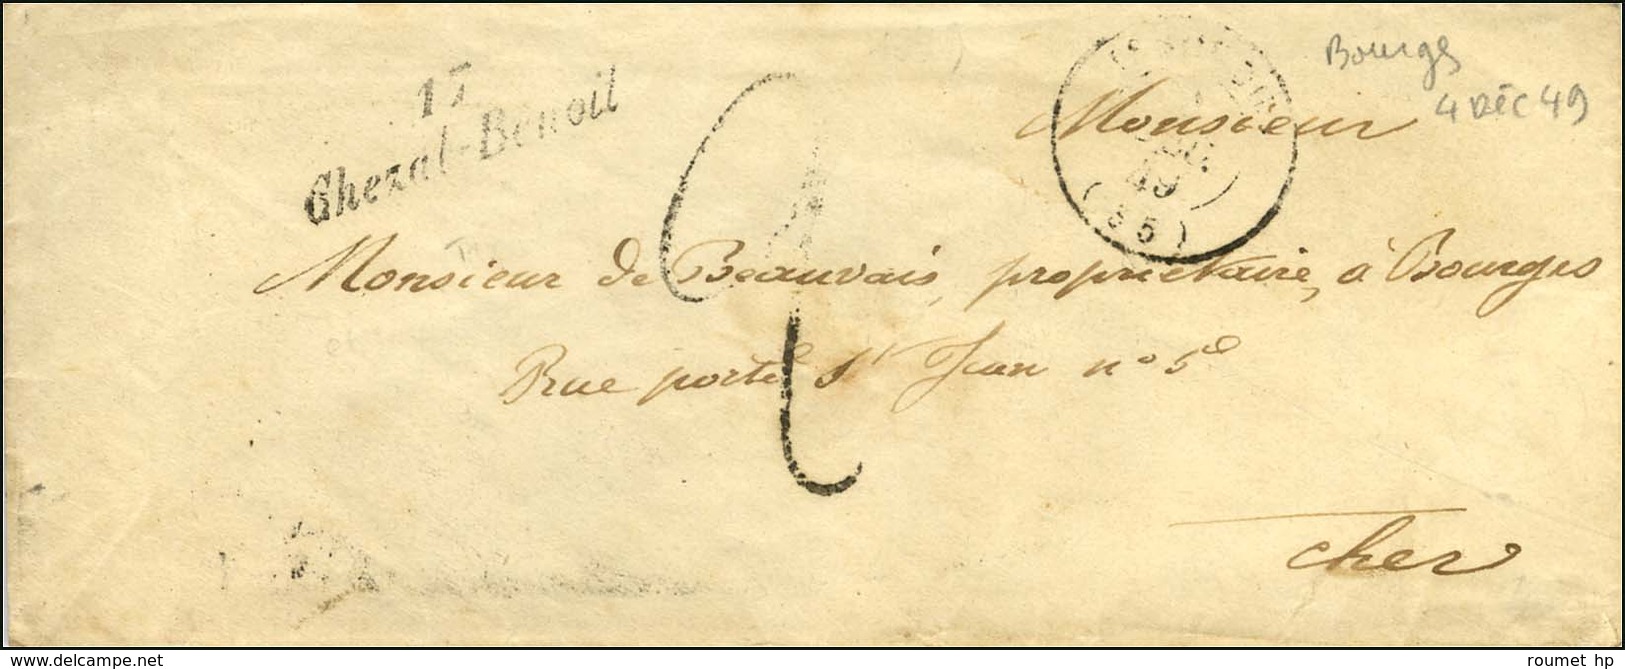 17
Chezal-Benoit
Bourges
4 DÉC 49
Monsieur
49
Monsieur de Beauvais, propriétaire, à Bourges
Rue porte St Jean no 5
Cher
www.delcampe.net
roumet hp